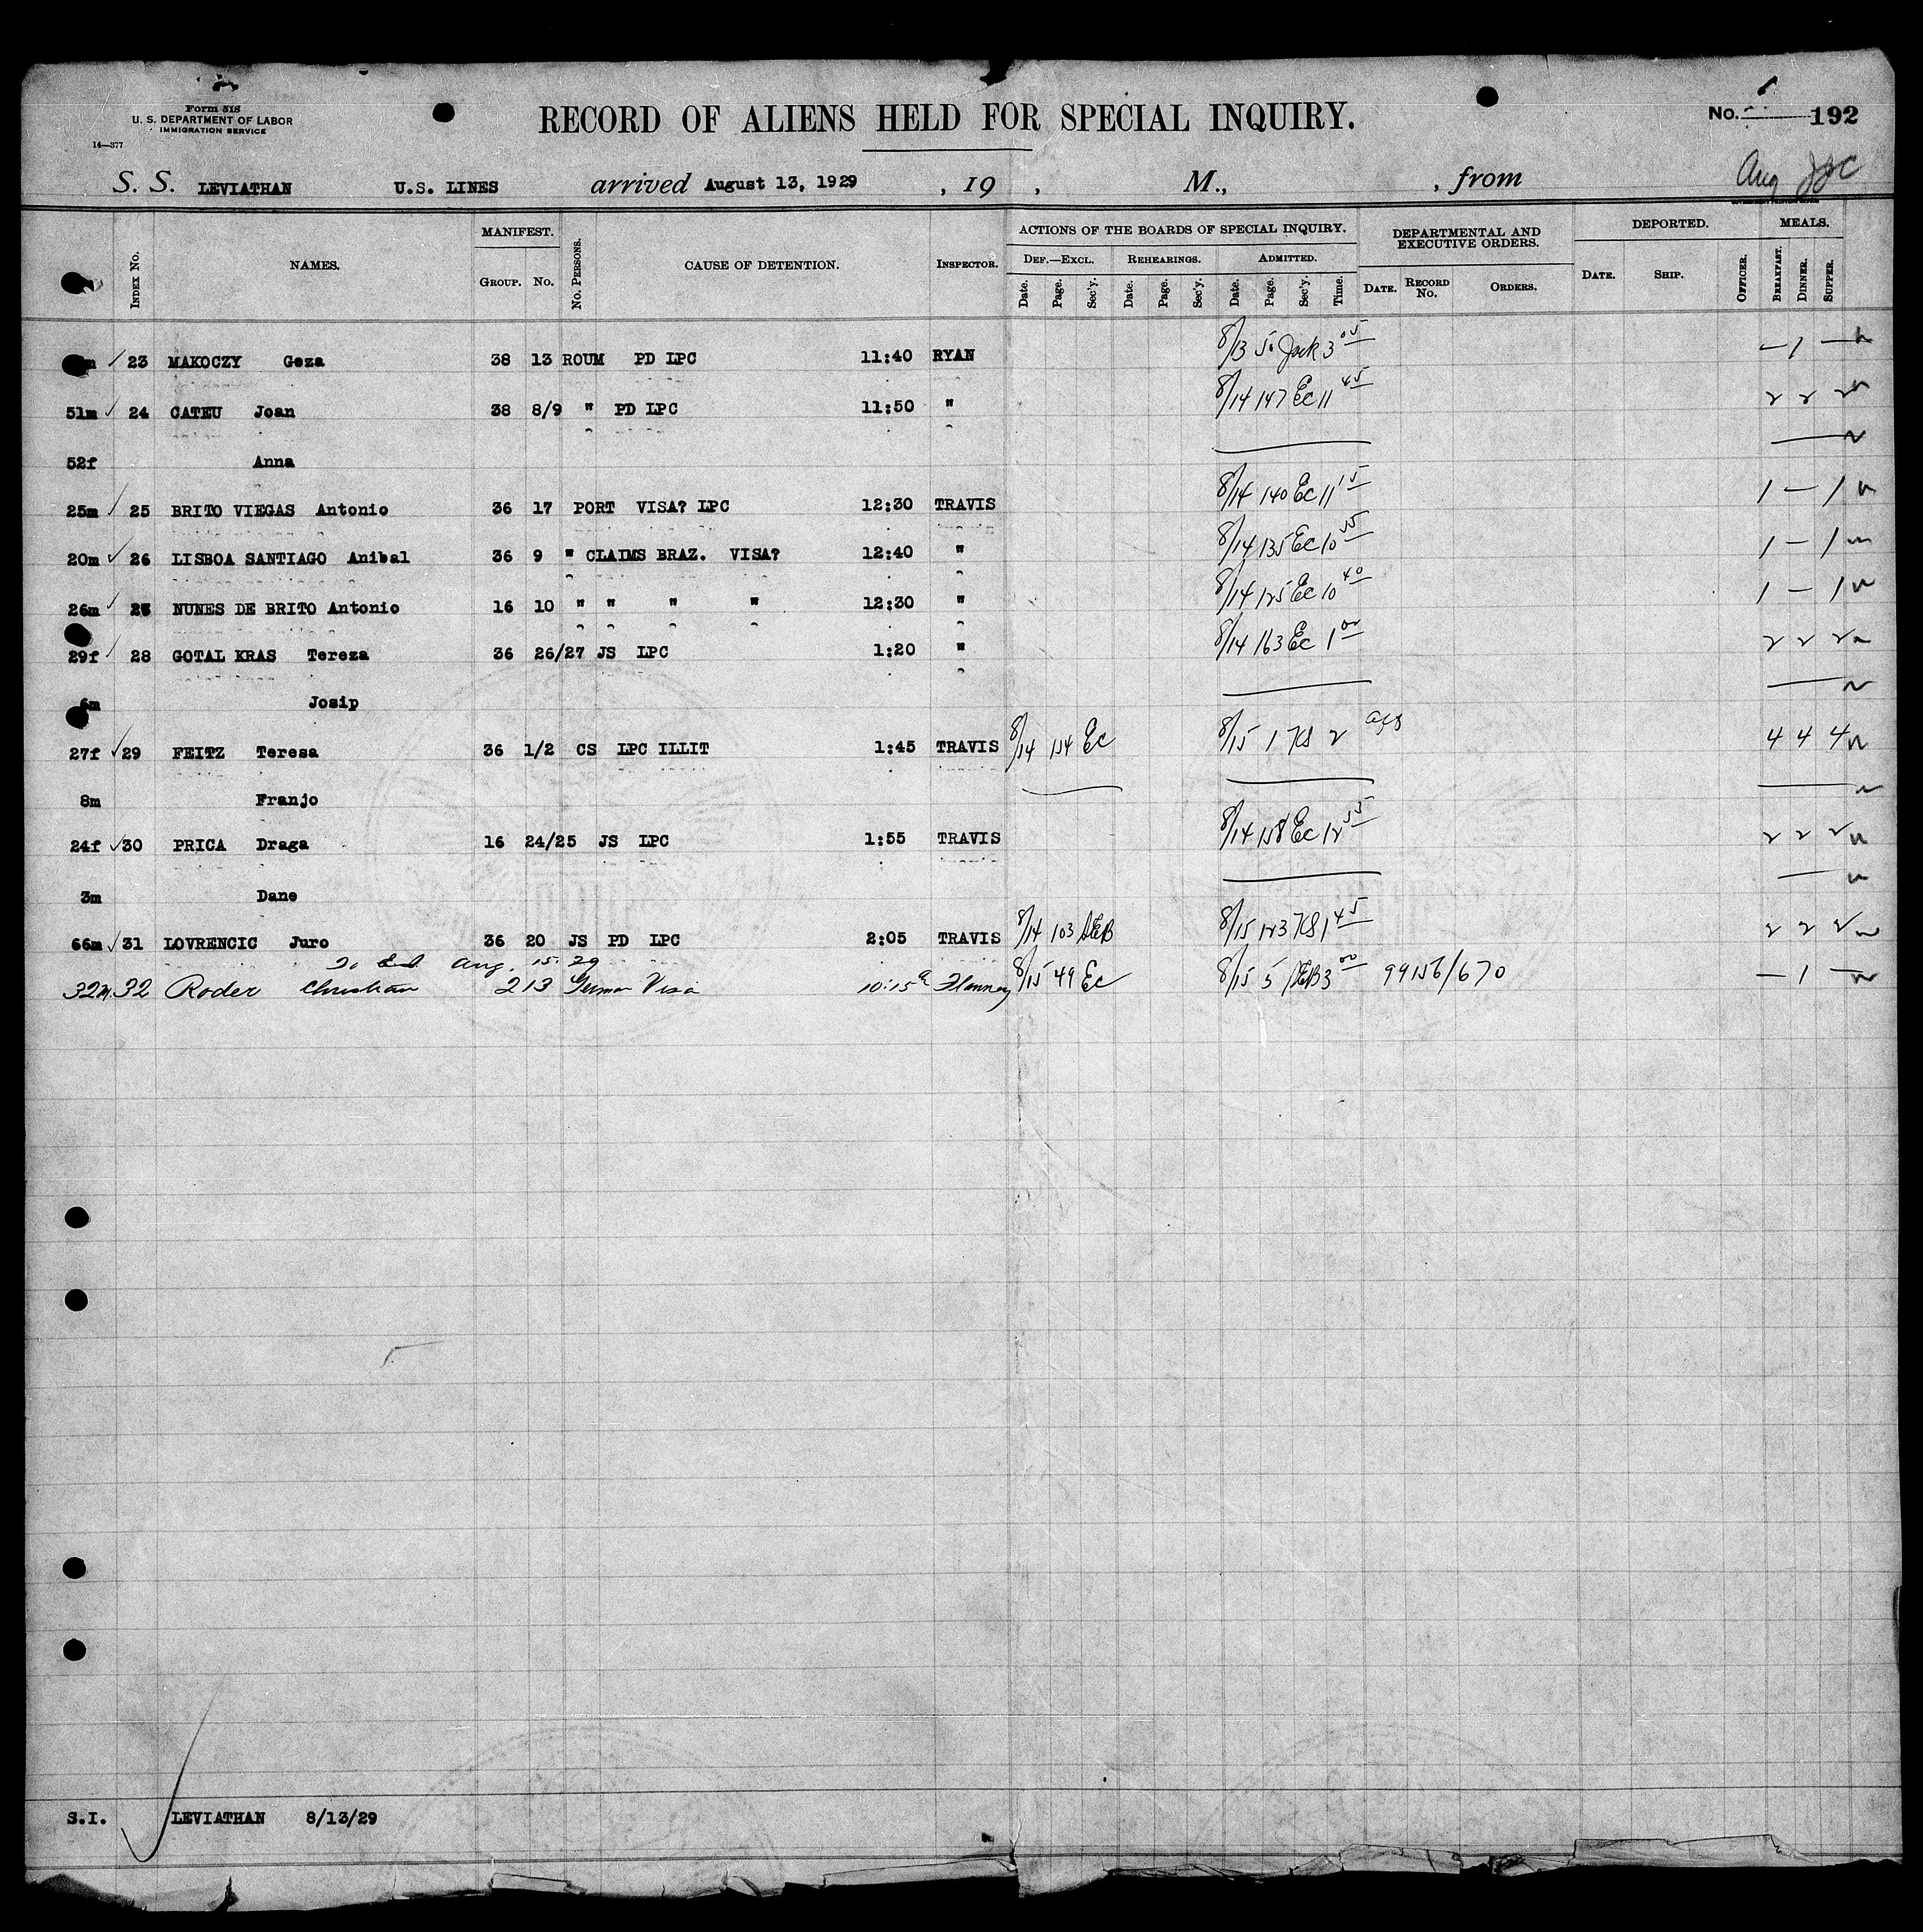 Form 518
U. S. DEPARTMENT OF LABOR
IMMIGRATION SERVICE
14—377
RECORD OF ALIENS HELD FOR SPECIAL INQUIRY.
No. 192
S. S. LEVIATHAN U.S. LINES arrived August 13, 1929 , 19 , M., , from
Aug
INDEX No. NAMES. MANIFEST. GROUP. NO. No. PERSONS. CAUSE OF DETENTION. INSPECTOR. ACTIONS OF THE BOARDS OF SPECIAL INQUIRY. DEPARTMENTAL AND EXECUTIVE ORDERS. DEPORTED. MEALS.
DEF.—EXCL. REHEARINGS. ADMITTED.
Date. Page. Sec'y. Date. Page. Sec'y. Date. Page. Sec'y. Time. DATE. RECORD No. ORDERS. DATE. SHIP. OFFICER. BREAKFAST. DINNER. SUPPER.
23 MAKOCZY Geza 38 13 ROUM PD LPC 11:40 RYAN 8/13 3 05 — 1 —
51m 24 CATEU Joan 38 8/9 " PD LPC 11:50 " 8/14 147 Ec 11 45 2 2 2
52f Anna
25m 25 BRITO VIEGAS Antonio 36 17 PORT VISA? LPC 12:30 TRAVIS 8/14 140 Ec 11 15 1 — 1
20m 26 LISBOA SANTIAGO Anibal 36 9 " CLAIMS BRAZ. VISA? 12:40 " 8/14 135 Ec 10 55 1 — 1
26m NUNES DE BRITO Antonio 16 10 " " " " 12:30 " 8/14 125 Ec 10 40 1 — 1
29f 28 GOTAL KRAS Tereza 36 26/27 JS LPC 1:20 " 8/14 163 Ec 1 00 2 2 2
6m Josip
27f 29 FEITZ Teresa 36 1/2 CS LPC ILLIT 1:45 TRAVIS 8/14 154 Ec 8/15 1 KS 2 4 4 4
8m Franjo
24f 30 PRICA Draga 16 24/25 JS LPC 1:55 TRAVIS 8/14 158 Ec 12 55 2 2 2
3m Dane
66m 31 LOVRENCIC Juro 36 20 JS PD LPC 2:05 TRAVIS 8/14 103 AEB 8/15 123 KS 1 45 2 2 2
Aug. 15. 29
32m. 32 Roder Christian 2 13 German Visa 10:15 a Flannery 8/15 49 Ec 8/15 5 AEB 3 00 99156/670 — 1 —
S.I. LEVIATHAN 8/13/29